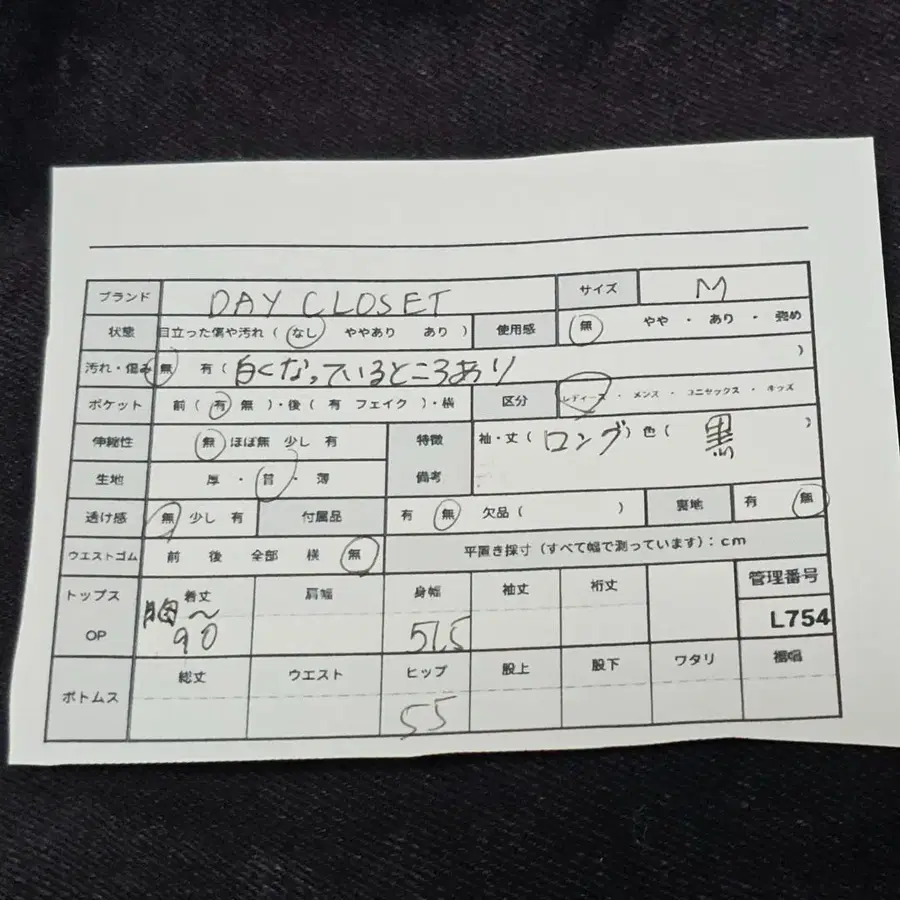 ブランド DAY CLOSET サイズ M
状態 目立った傷や汚れ ( なし ややあり あり ) 使用感 無 やや ・ あり ・ 強め
汚れ・傷み 無 有 ( 白くなっているところあり )
ポケット 前 ( 有 無 )・後 ( 有 フェイク )・横 区分 レディース ・ メンズ ・ ユニセックス ・ キッズ
伸縮性 無 ほぼ無 少し 有 特徴 袖・丈 ( ロング ) 色 ( 黒 )
生地 厚 ・ 普 ・ 薄 備考
透け感 無 少し 有 付属品 有 無 欠品 ( ) 裏地 有 無
ウエストゴム 前 後 全部 横 無 平置き採寸 (すべて幅で測っています) : cm
トップス 着丈 肩幅 身幅 袖丈 裄丈 管理番号
OP 胸〜 90 51.5 L754
ボトムス 総丈 ウエスト ヒップ 股上 股下 ワタリ 裾幅
55